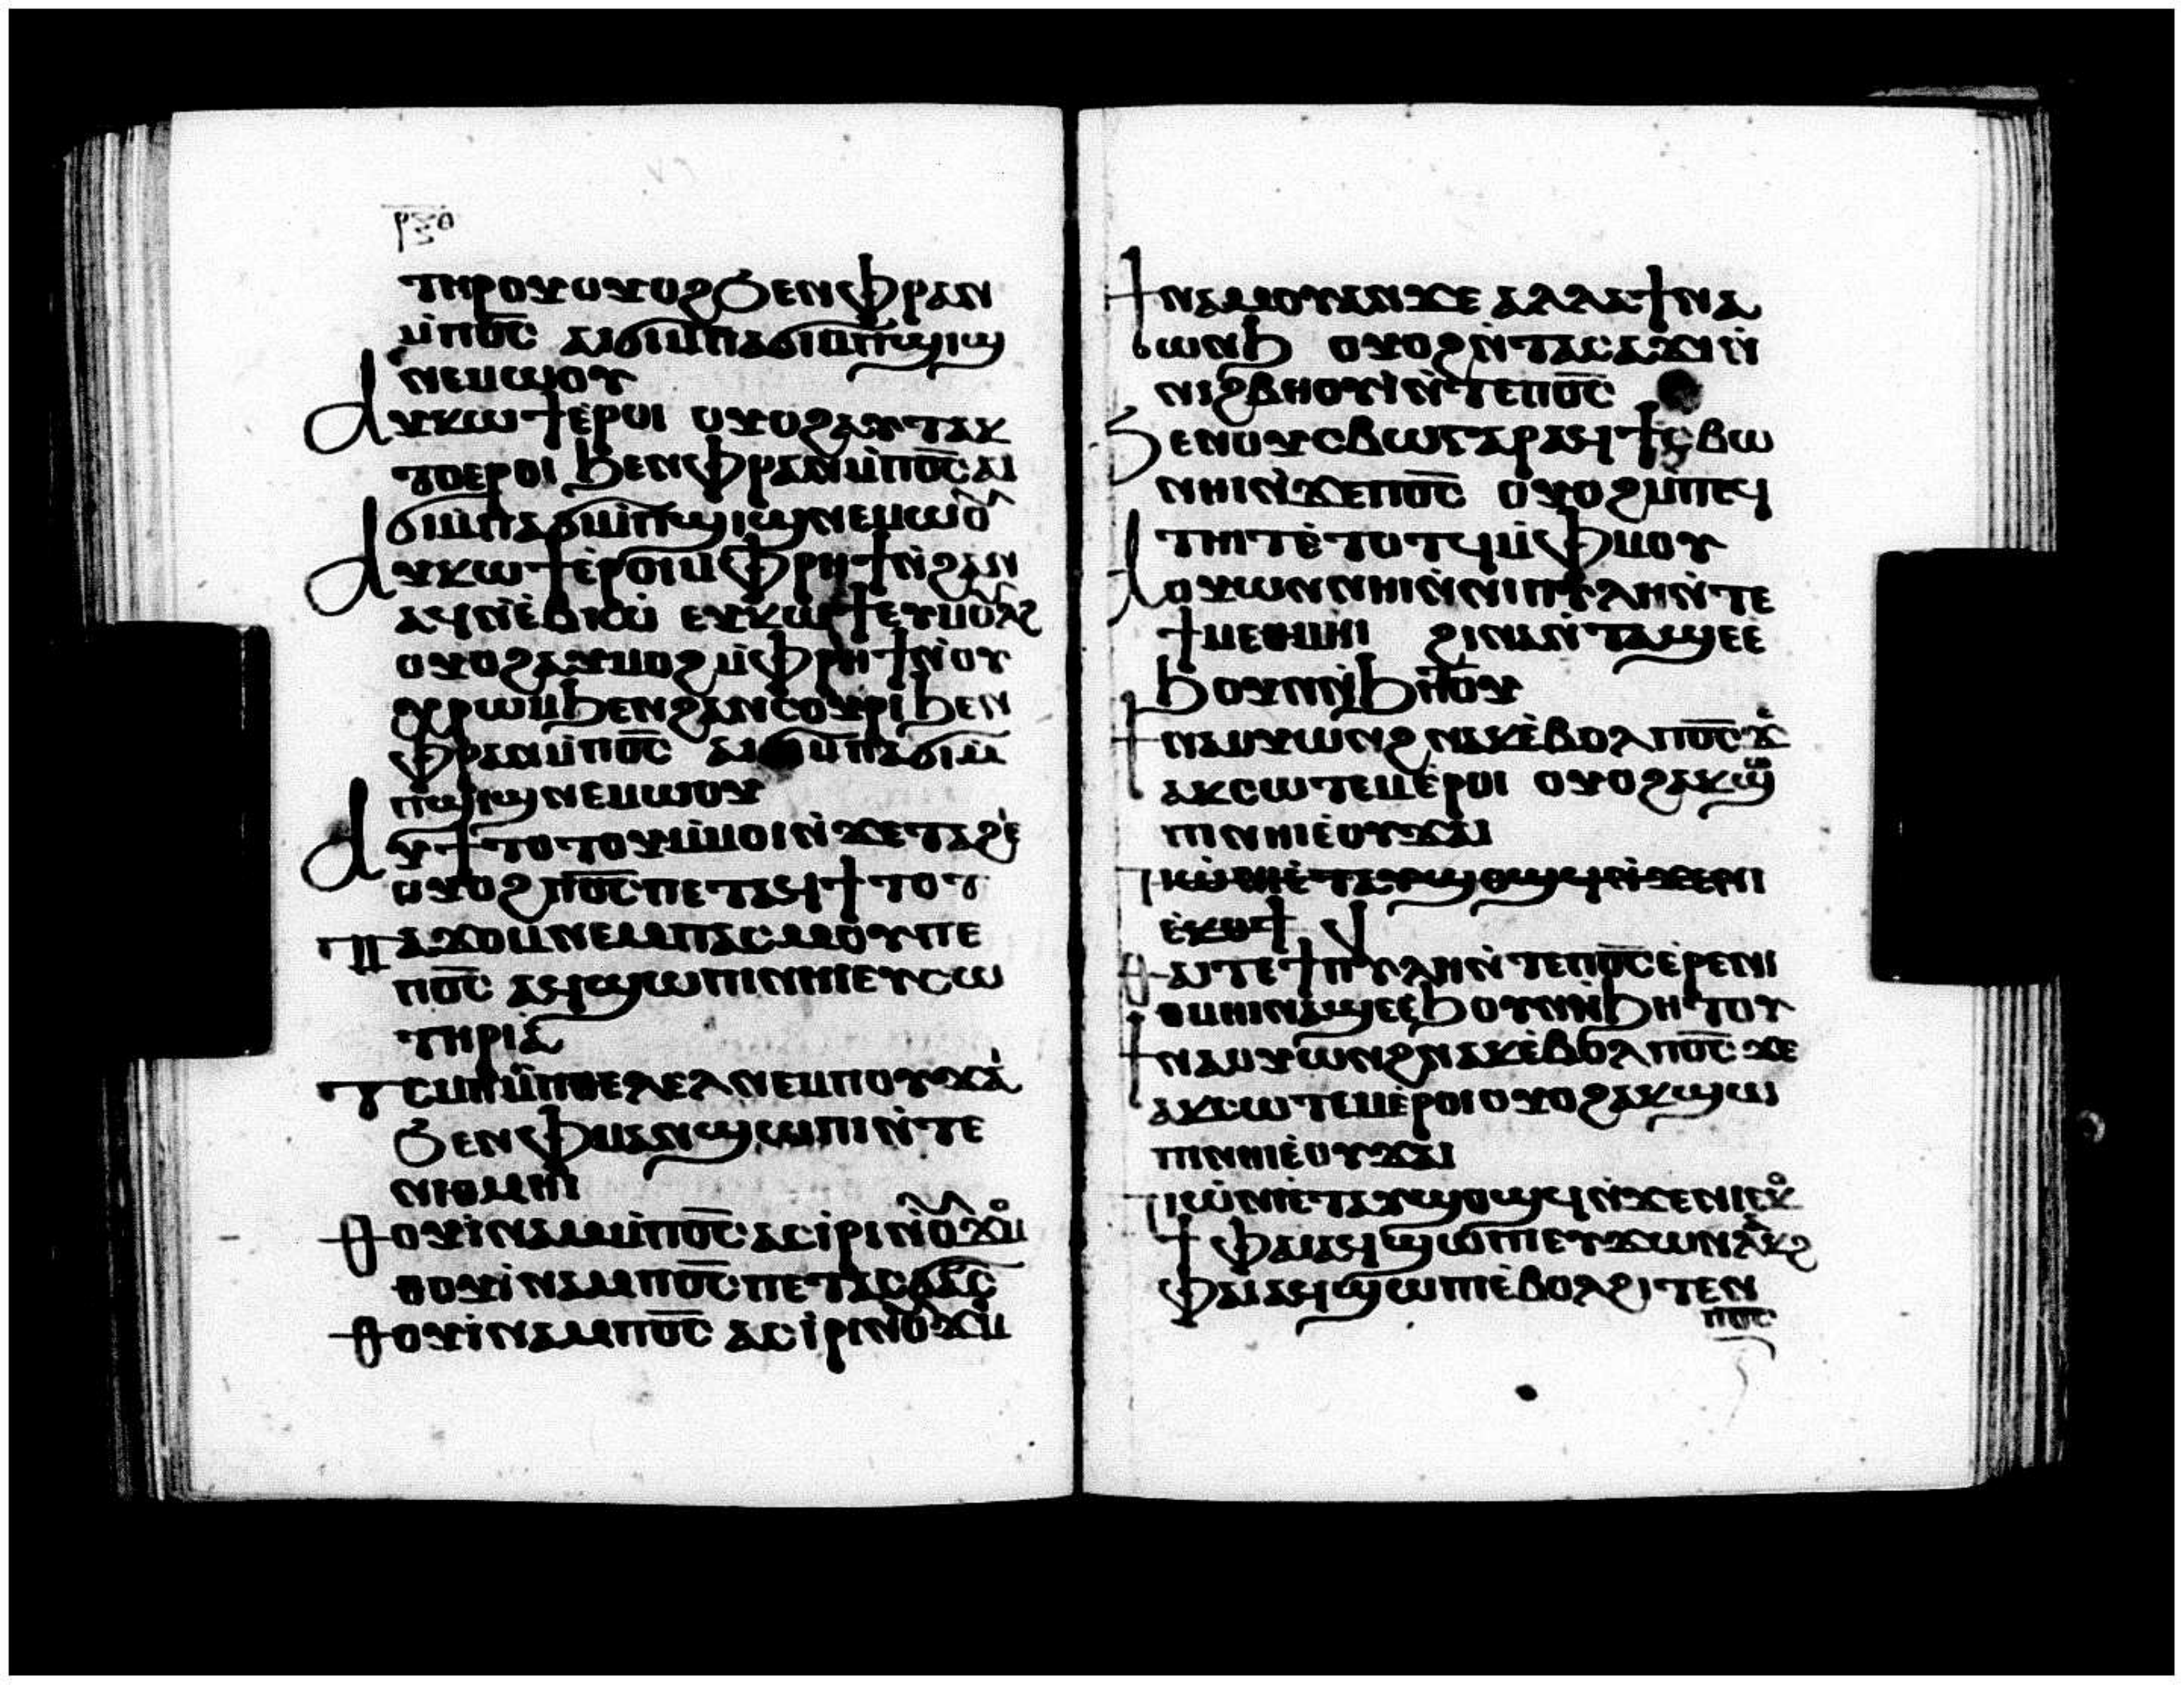 ⲣⲝⲑ
ⲧⲏⲣⲟⲩ ⲟⲩⲟϩ ϧⲉⲛ ⲫⲣⲁⲛ
ⲙ̀ⲡⲟ̅ⲥ̅ ⲁⲓϭⲓ ⲙ̀ⲡⲁϭⲓⲙ̀ⲡϣⲓϣ
ⲛⲉⲙⲱⲟⲩ
ⲁⲩⲕⲱϯ ⲉ̀ⲣⲟⲓ ⲟⲩⲟϩ ⲁⲩⲧⲁⲕ
ⲧⲟ ⲉⲣⲟⲓ ϧⲉⲛ ⲫⲣⲁⲛ ⲙ̀ⲡⲟ̅ⲥ̅ ⲁⲓ
ϭⲓ ⲙ̀ⲡⲁϭⲓⲙ̀ⲡϣⲓϣ ⲛⲉⲙⲱⲟⲩ
ⲁⲩⲕⲱϯ ⲉ̀ⲣⲟⲓ ⲙ̀ⲫⲣⲏϯ ⲛ̀ϩⲁⲛ
ⲁϥ ⲛ̀ⲉⲃⲓⲱ ⲉⲩⲕⲱϯ ⲉⲩⲙⲟⲗϩ
ⲟⲩⲟϩ ⲁⲩⲙⲟϩ ⲙ̀ⲫⲣⲏϯ ⲛ̀ⲟⲩ
ⲭⲣⲱⲙ ϧⲉⲛ ϩⲁⲛⲥⲟⲩⲣⲓ ϧⲉⲛ
ⲫⲣⲁⲛ ⲙ̀ⲡⲟ̅ⲥ̅ ⲁⲓϭⲓ ⲙ̀ⲡⲁϭⲓⲙ̀
ⲡϣⲓϣ ⲛⲉⲙⲱⲟⲩ
ⲁⲩϯⲧⲟⲧⲟⲩ ⲙ̀ⲙⲟⲓ ⲛ̀ϫⲉ ⲧⲁϩⲉ
ⲟⲩⲟϩ ⲡⲟ̅ⲥ̅ ⲡⲉⲧⲁϥϯⲧⲟⲧ
ⲡⲁϫⲟⲙ ⲛⲉⲙ ⲡⲁⲥⲙⲟⲩ ⲡⲉ
ⲡⲟ̅ⲥ̅ ⲁϥϣⲱⲡⲓ ⲛⲏⲓ ⲉⲩⲥⲱ
ⲧⲏⲣⲓⲁ
ⲧⲥⲙⲏ ⲙ̀ⲡⲑⲉⲗⲉⲗ ⲛⲉⲙ ⲡⲟⲩϫⲁⲓ
ϧⲉⲛ ⲫⲙⲁⲛϣⲱⲡⲓ ⲛ̀ⲧⲉ
ⲛⲓⲑⲙⲏⲓ
ⲑⲟⲩⲓ̀ⲛⲁⲙ ⲙ̀ⲡⲟ̅ⲥ̅ ⲁⲥⲓⲣⲓ ⲛ̀ⲟⲩϫⲟⲙ
ⲑⲟⲩⲓ̀ⲛⲁⲙ ⲡⲟ̅ⲥ̅ ⲡⲉⲧⲁⲥϭⲁⲥⲧ
ⲑⲟⲩⲓ̀ⲛⲁⲙ ⲡⲟ̅ⲥ̅ ⲁⲥⲓⲣⲓ ⲛ̀ⲟⲩϫⲟⲙ
ϯⲛⲁⲙⲟⲩ ⲁⲛ ϫⲉ ⲁⲗⲗⲁ ϯⲛⲁ
ⲱⲛϧ ⲟⲩⲟϩ ⲛ̀ⲧⲁⲥⲁϫⲓ ⲛ̀
ⲛⲓϩⲃⲏⲟⲩⲓ ⲛ̀ⲧⲉ ⲡⲟ̅ⲥ̅
ϧⲉⲛ ⲟⲩⲥⲃⲱ ⲅⲁⲣ ⲁϥϯⲥⲃⲱ
ⲛⲏⲓ ⲛ̀ϫⲉ ⲡⲟ̅ⲥ̅ ⲟⲩⲟϩ ⲙ̀ⲡⲉϥ
ⲧⲏⲓⲧ ⲉ̀ⲧⲟⲧϥ ⲙ̀ⲫⲙⲟⲩ
ⲁⲟⲩⲱⲛ ⲛⲏⲓ ⲛ̀ⲛⲓⲡⲩⲗⲏ ⲛ̀ⲧⲉ
ϯⲙⲉⲑⲙⲏⲓ ϩⲓⲛⲁ ⲛ̀ⲧⲁϣⲉ ⲉ̀
ϧⲟⲩⲛ ⲛ̀ϧⲏⲧⲟⲩ
ϯⲛⲁⲟⲩⲱⲛϩ ⲛⲁⲕ ⲉ̀ⲃⲟⲗ ⲡⲟ̅ⲥ̅ ϫⲉ
ⲁⲕⲥⲱⲧⲉⲙ ⲉ̀ⲣⲟⲓ ⲟⲩⲟϩ ⲁⲕϣⲱ
ⲡⲓ ⲛⲏⲓ ⲉ̀ⲟⲩϫⲁⲓ
ⲡⲓⲱ̀ⲛⲓ ⲉ̀ⲧⲁⲩϣⲟϣϥ ⲛ̀ϫⲉ ⲛⲏ
ⲉ̀ⲕⲟϯ
ⲑⲁⲓ ⲧⲉ ϯⲡⲩⲗⲏ ⲛ̀ⲧⲉ ⲡⲟ̅ⲥ̅ ⲉ̀ⲣⲉ ⲛⲓ
ⲑⲙⲏⲓ ⲛⲁϣⲉ ⲉ̀ϧⲟⲩⲛ ⲛ̀ϧⲏⲧⲟⲩ
ϯⲛⲁⲟⲩⲱⲛϩ ⲛⲁⲕ ⲉ̀ⲃⲟⲗ ⲡⲟ̅ⲥ̅ ϫⲉ
ⲁⲕⲥⲱⲧⲉⲙ ⲉ̀ⲣⲟⲓ ⲟⲩⲟϩ ⲁⲕϣⲱ
ⲡⲓ ⲛⲏⲓ ⲉ̀ⲟⲩϫⲁⲓ
ⲡⲓⲱ̀ⲛⲓ ⲉ̀ⲧⲁⲩϣⲟϣϥ ⲛ̀ϫⲉ ⲛⲓⲉⲕⲟ
ϯ ⲫⲁⲓ ⲁϥϣⲱⲡⲓ ⲉⲩϫⲱ ⲛⲗⲁⲕϩ
ⲫⲁⲓ ⲁϥϣⲱⲡⲓ ⲉ̀ⲃⲟⲗ ϩⲓⲧⲉⲛ
ⲡⲟ̅ⲥ̅